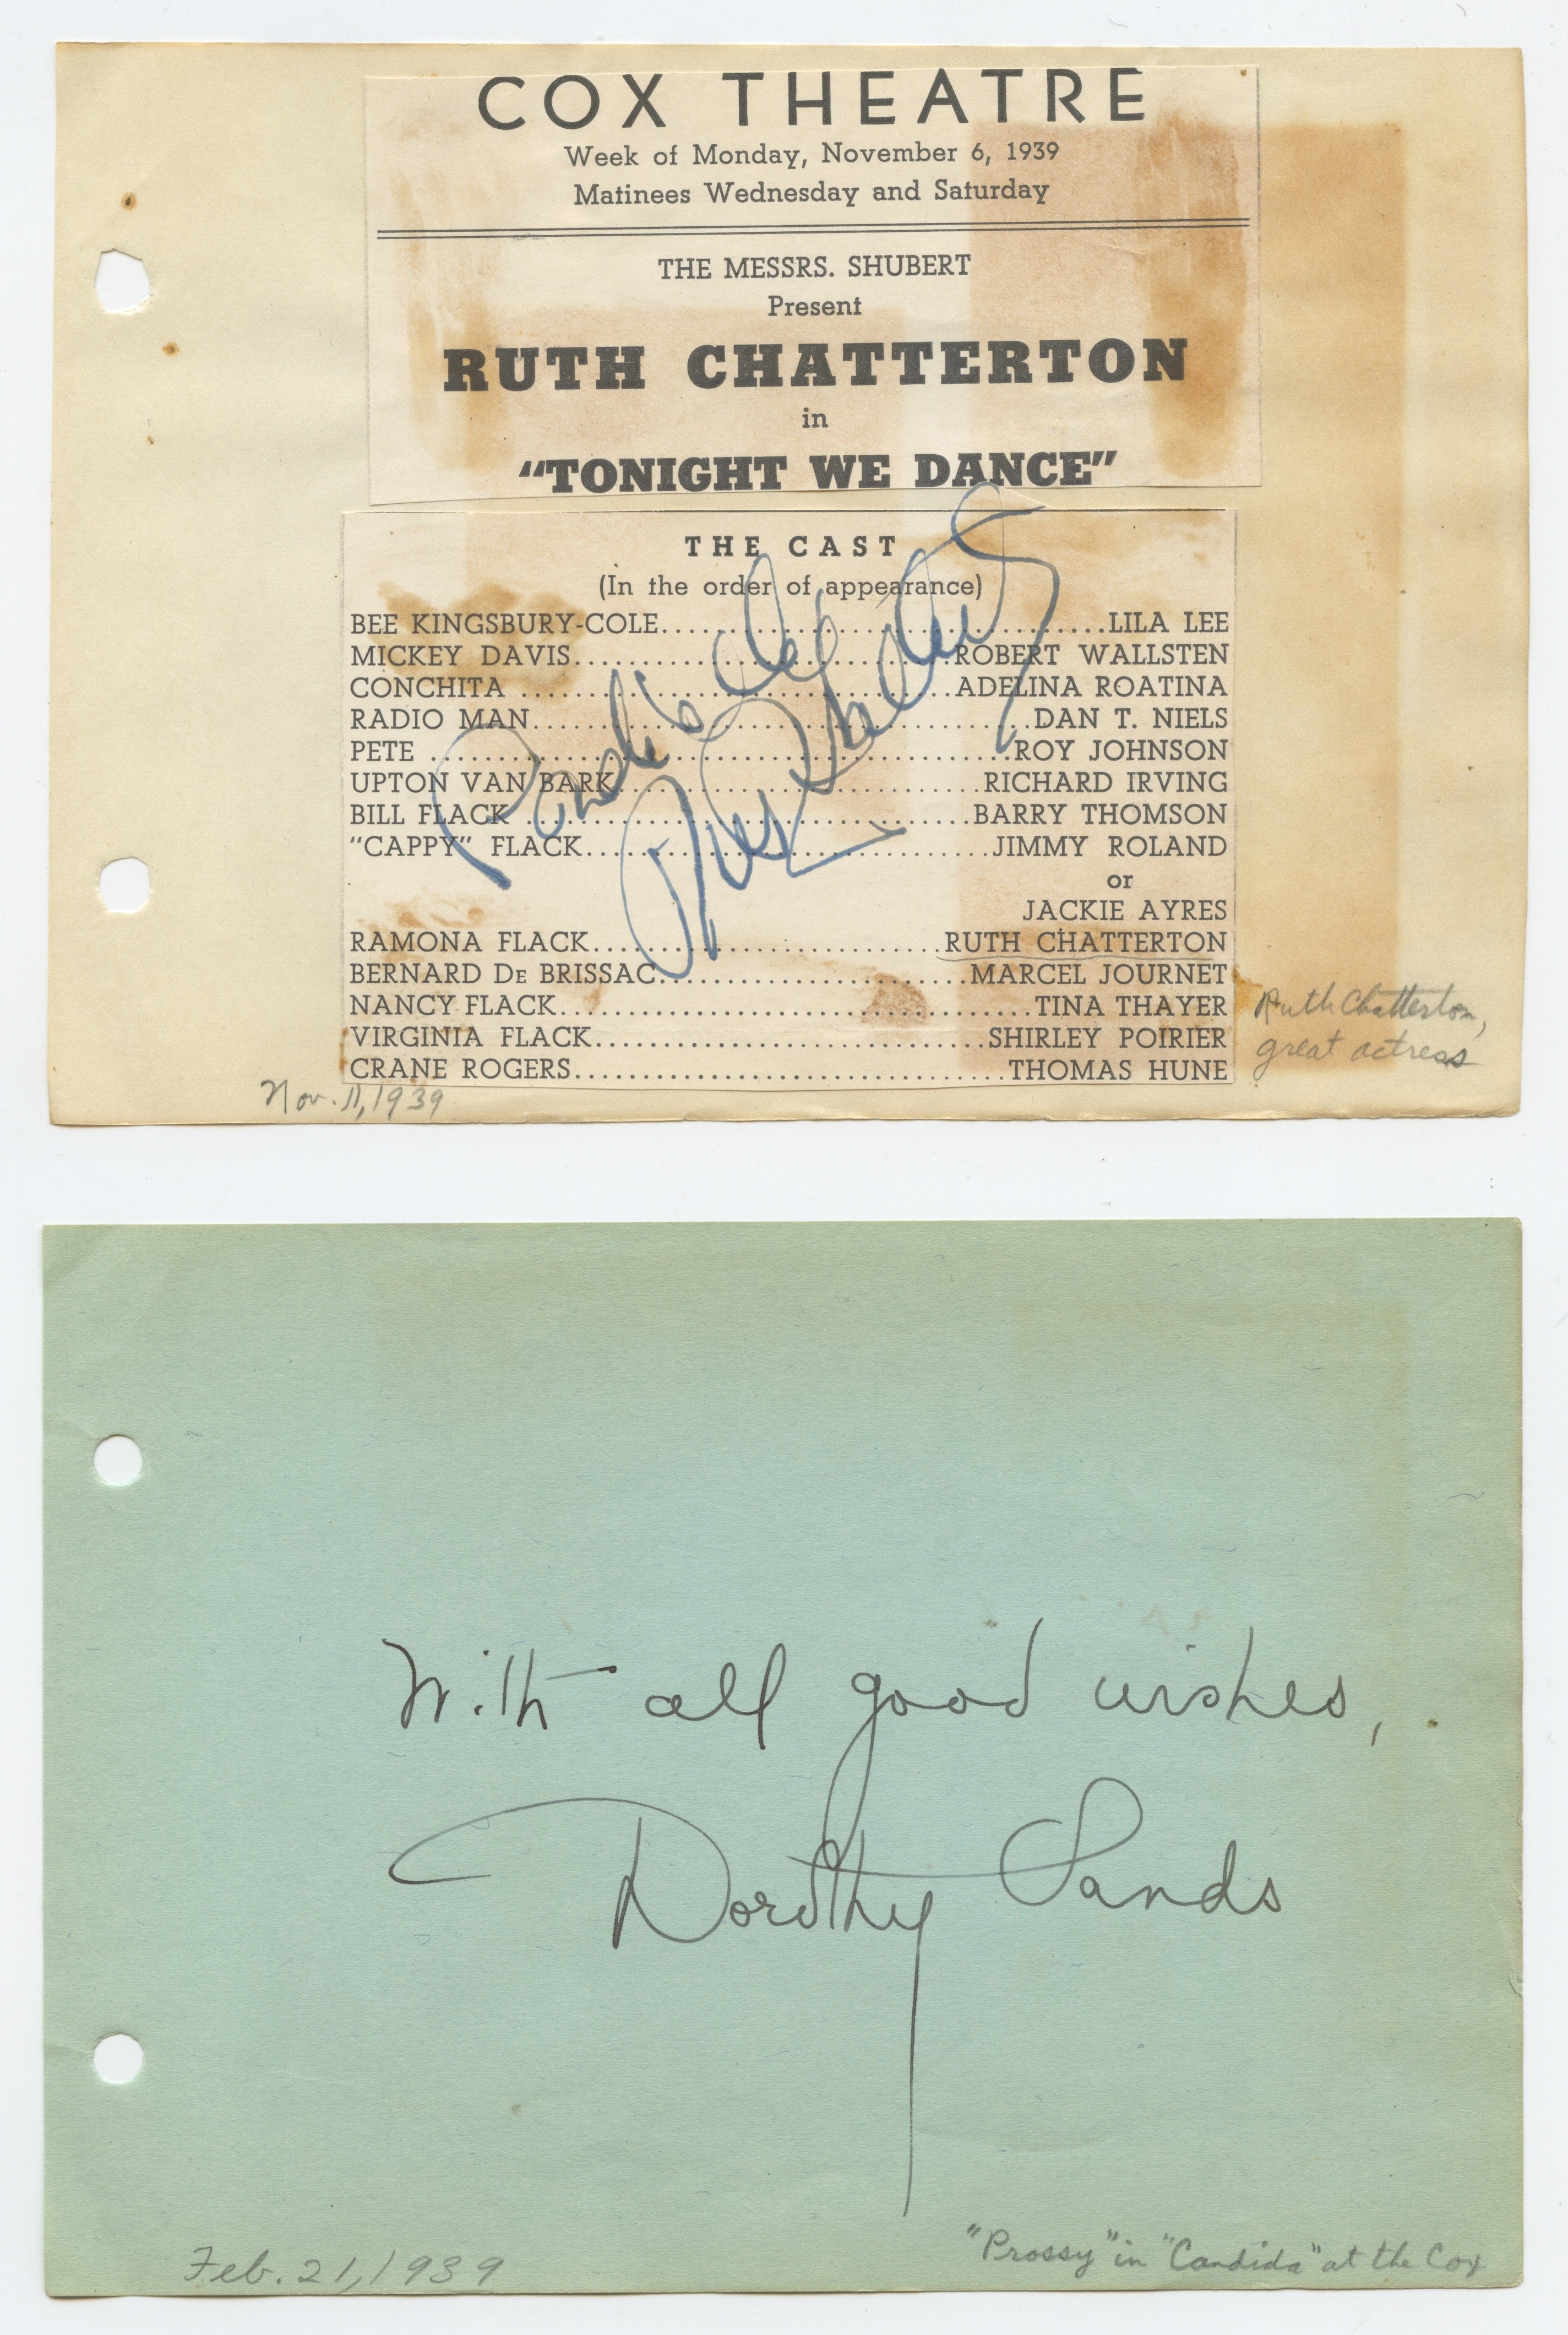 COX THEATRE
Week of Monday, November 6, 1939
Matinees Wednesday and Saturday
THE MESSRS. SHUBERT
Present
RUTH CHATTERTON
in
“TONIGHT WE DANCE”
THE CAST
(In the order of appearance)
BEE KINGSBURY-COLE........................................LILA LEE
MICKEY DAVIS..................................ROBERT WALLSTEN
CONCHITA .......................................ADELINA ROATINA
RADIO MAN.............................................DAN T. NIELS
PETE .....................................................ROY JOHNSON
UPTON VAN BARK.................................RICHARD IRVING
BILL FLACK .......................................BARRY THOMSON
“CAPPY” FLACK....................................JIMMY ROLAND
or
JACKIE AYRES
RAMONA FLACK..............................RUTH CHATTERTON
BERNARD DE BRISSAC..........................MARCEL JOURNET
NANCY FLACK..........................................TINA THAYER
VIRGINIA FLACK...................................SHIRLEY POIRIER
CRANE ROGERS......................................THOMAS HUNE
Ruth Chatterton,
great actress
Nov. 11, 1939
With all good wishes,
Dorothy Sands
Feb. 21, 1939
"Prossy" in "Candida" at the Cox